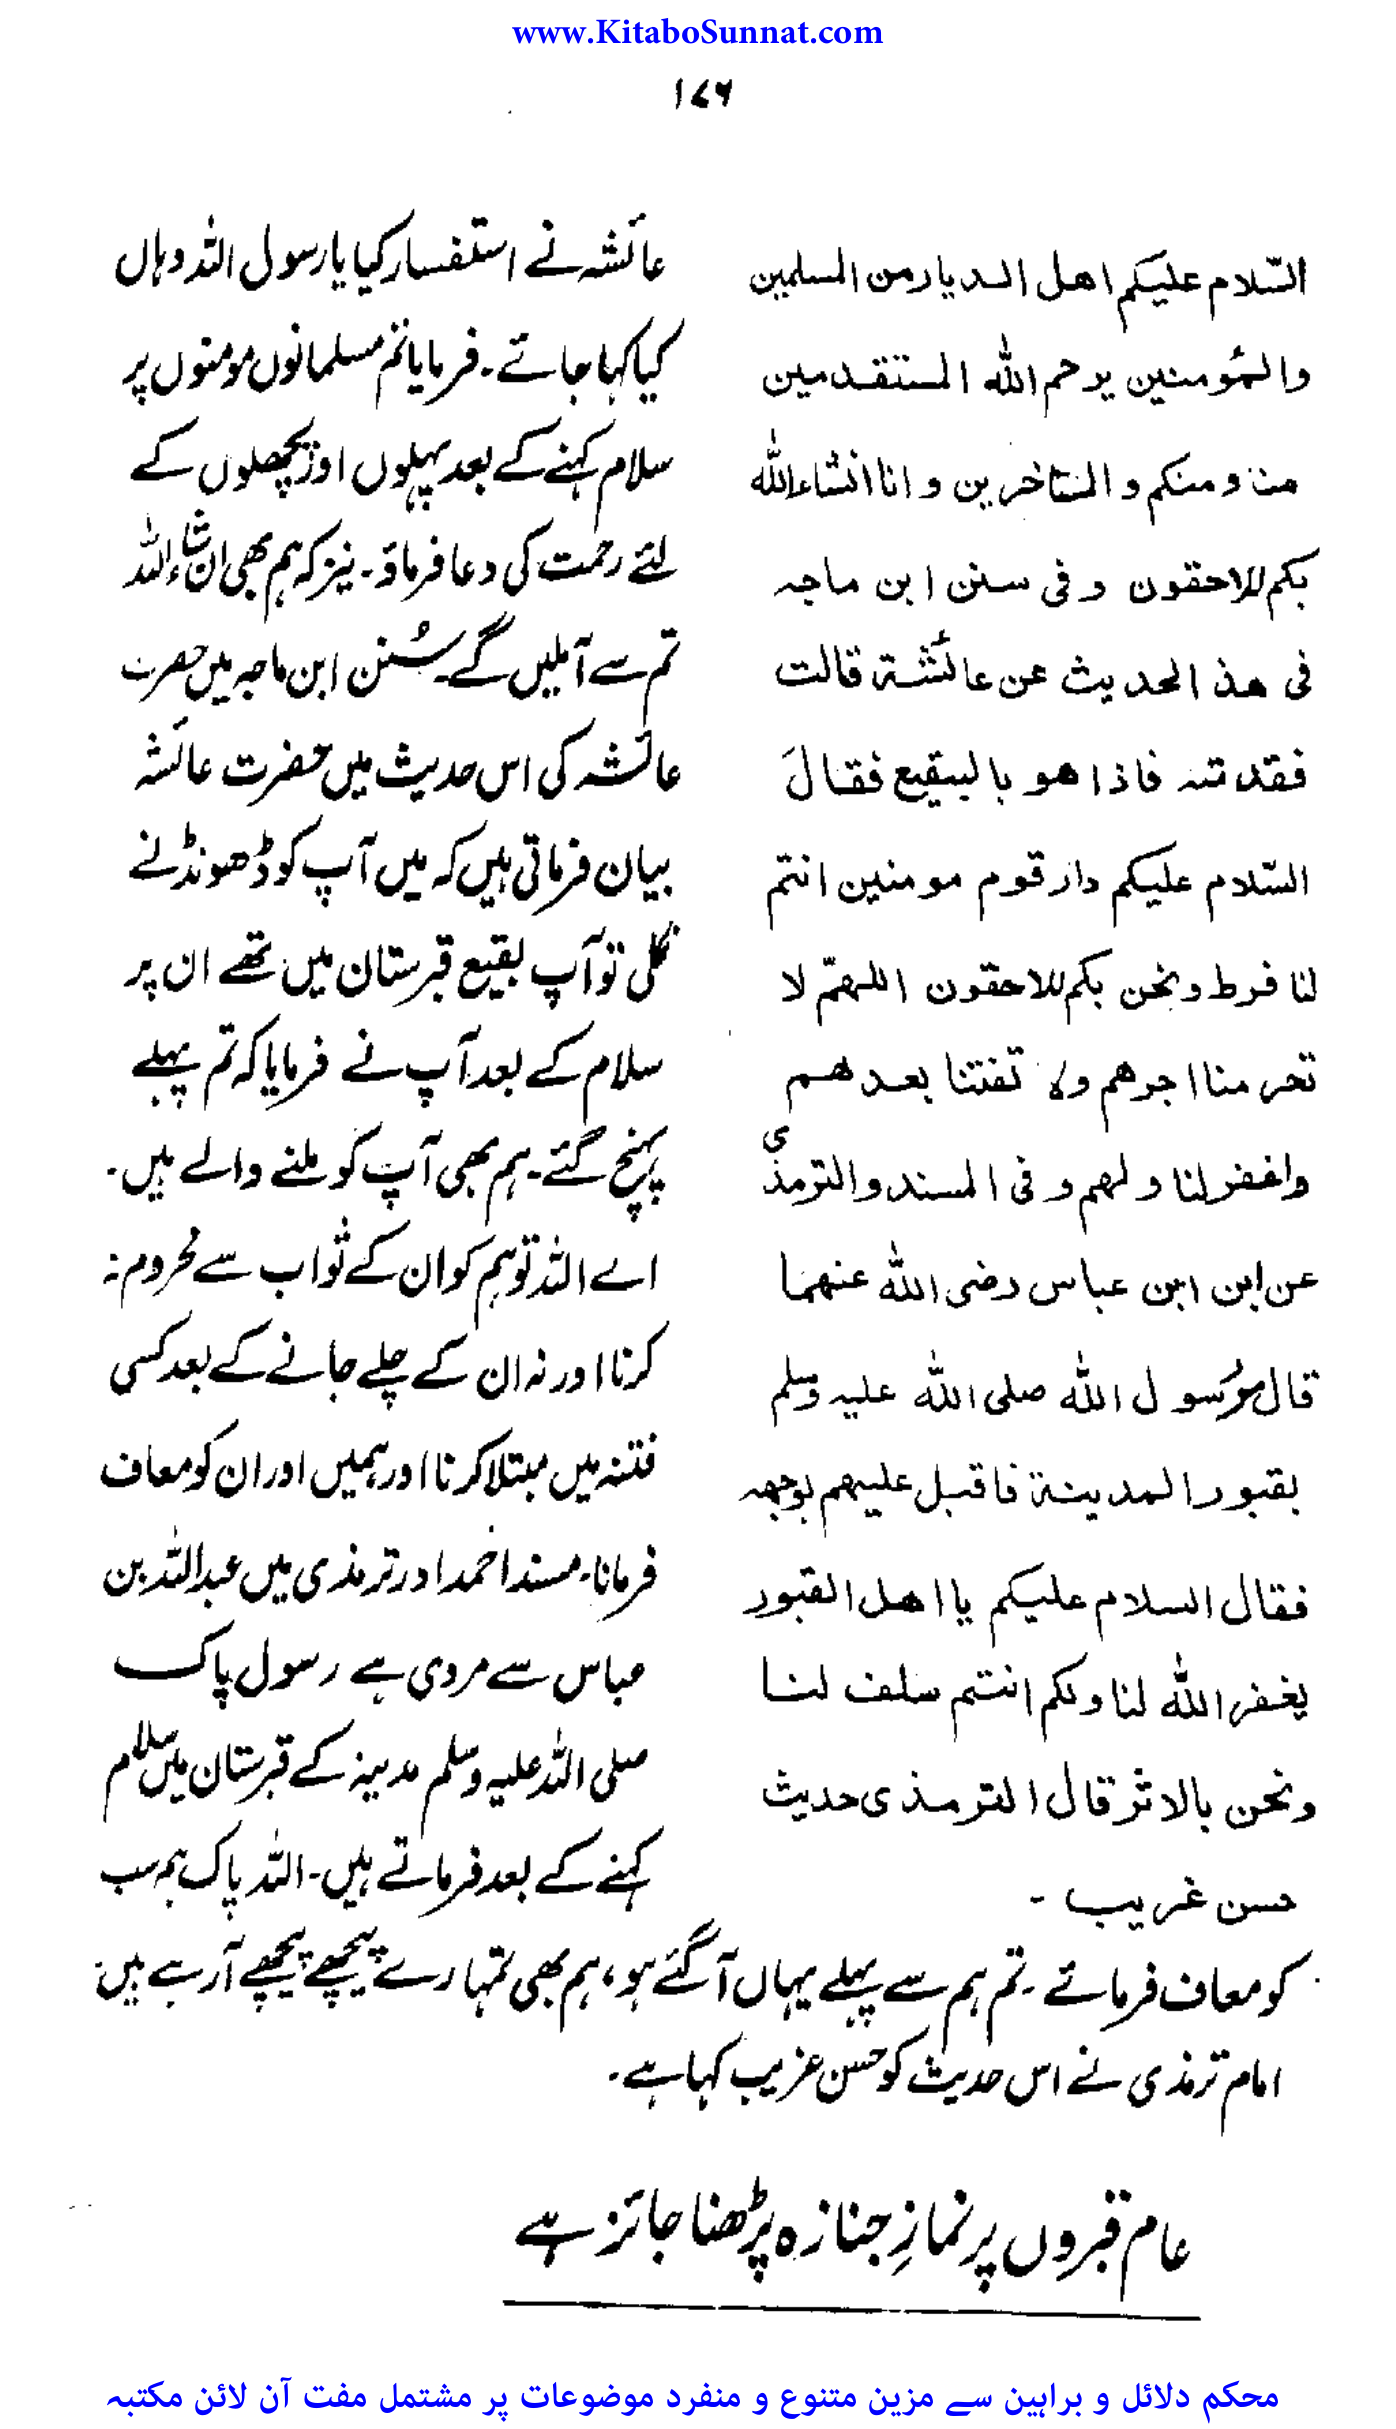 www.KitaboSunnat.com
۱۷۶
السّلام علیکم اهل الدیار من المسلمین
والمؤمنین یرحم الله المستقدمین
منا ومنکم والمستاخرین وانا انشاءالله
بکم للاحقون وفی سنن ابن ماجه
فی هذا الحدیث عن عائشة قالت
فقدته فاذا هو بالبقیع فقالَ
السّلام علیکم دار قوم مومنین انتم
لنا فرط ونحن بکم للاحقون اللهمّ لا
تحرمنا اجرهم ولا تفتنا بعدهم
واغفر لنا ولهم وفی المسند والترمذی
عن ابن ابن عباس رضی الله عنهما
قال مر رسول الله صلی الله علیه وسلم
بقبور المدینة فاقبل علیهم بوجهه
فقال السلام علیکم یا اهل القبور
یغفر الله لنا ولکم انتم سلف لنا
ونحن بالاثر قال الترمذی حدیث
حسن غریب -
عائشہ نے استفسار کیا یا رسول اللہ وہاں
کیا کہا جائے۔ فرمایا تم مسلمانوں مومنوں پر
سلام کہنے کے بعد پہلوں اور پچھلوں کے
لئے رحمت کی دعا فرماؤ۔ نیز کہ ہم بھی ان شاء اللہ
تم سے آملیں گے۔ سُنن ابن ماجہ میں حضرت
عائشہ کی اس حدیث میں حضرت عائشہ
بیان فرماتی ہیں کہ میں آپ کو ڈھونڈنے
نکلی تو آپ بقیع قبرستان میں تھے ان پر
سلام کے بعد آپ نے فرمایا کہ تم پہلے
پہنچ گئے۔ ہم بھی آپ کو ملنے والے ہیں۔
اے اللہ تو ہم کو ان کے ثواب سے محروم نہ
کرنا اور نہ ان کے چلے جانے کے بعد کسی
فتنہ میں مبتلا کرنا اور ہمیں اور ان کو معاف
فرمانا۔ مسند احمد اور ترمذی میں عبداللہ بن
عباس سے مروی ہے رسول پاک
صلی اللہ علیہ وسلم مدینہ کے قبرستان میں سلام
کہنے کے بعد فرماتے ہیں۔ اللہ پاک ہم سب
کو معاف فرمائے۔ تم ہم سے پہلے یہاں آگئے ہو، ہم بھی تمہارے پیچھے پیچھے آرہے ہیں۔
امام ترمذی نے اس حدیث کو حسن غریب کہا ہے۔
عام قبروں پر نمازِ جنازہ پڑھنا جائز ہے
محکم دلائل و براہین سے مزین متنوع و منفرد موضوعات پر مشتمل مفت آن لائن مکتبہ